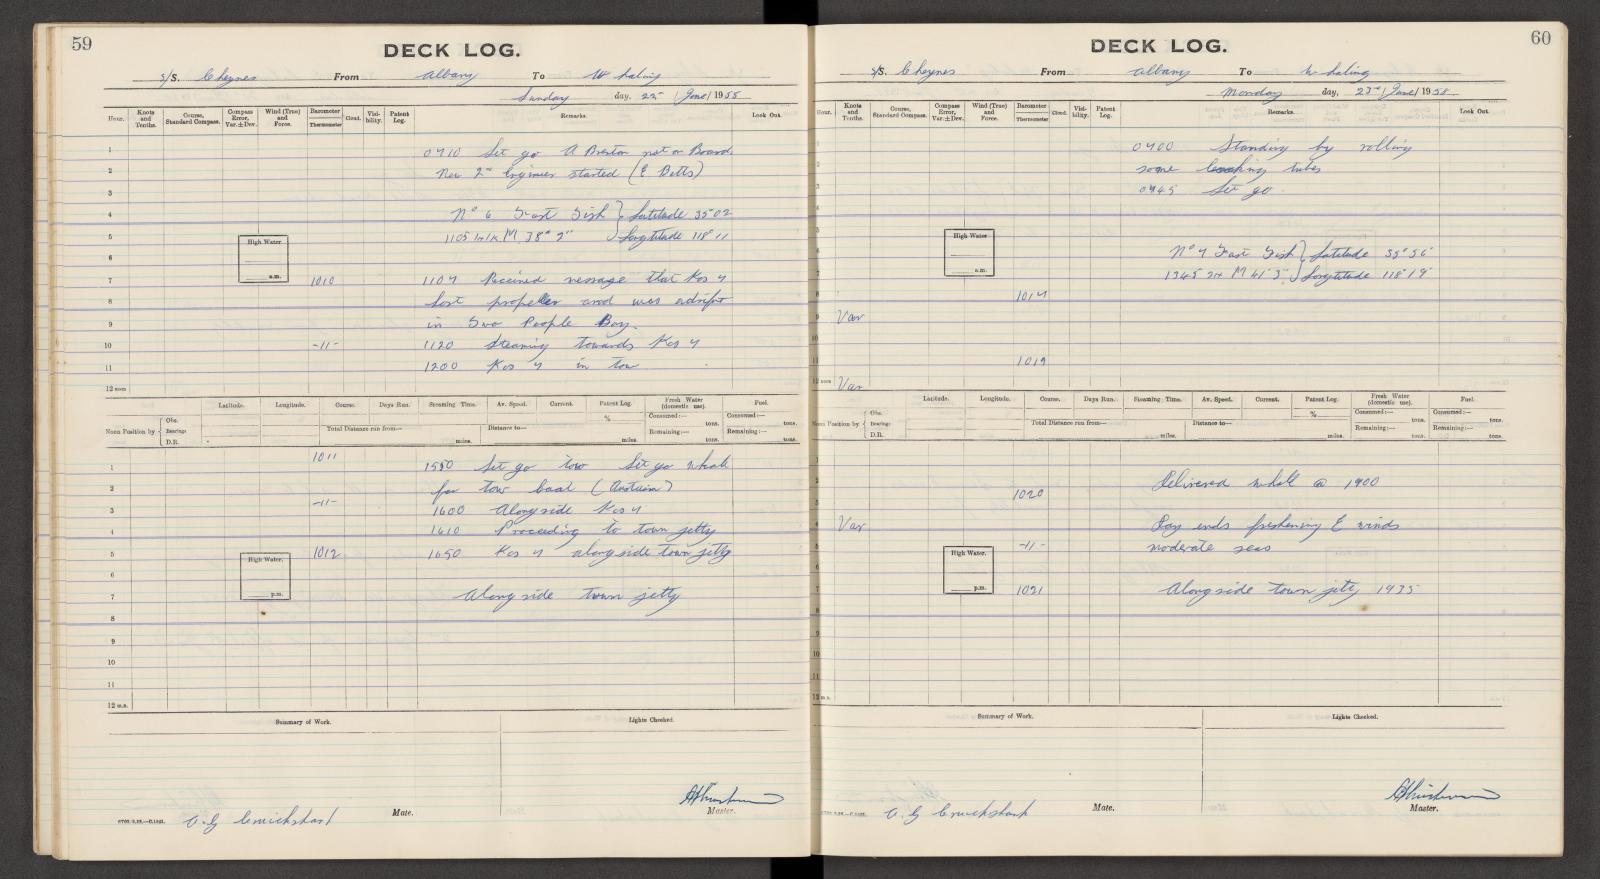 59
DECK LOG.
S/S. Cheynes From Albany To Whaling
Sunday day, 22nd / June / 1958
Hour. Knots and Tenths. Course, Standard Compass. Compass Error, Var.±Dev. Wind (True) and Force. Barometer Thermometer Cloud. Visibility. Patent Log. Remarks. Look Out.
1
0710 Let go A Breton not on Board.
2
New 2nd Engineer started (E Betts)
3
4
No 6 Fast Fish } Latitude 35° 02
5
1105 M 38" 2" } Longtitude 118° 11
High Water
a.m.
6
7
1010
1107 Received message that Kos 7
8
lost propeller and was adrift
9
in Two People Bay.
10
-11-
1120 Steaming towards Kos 7
11
1200 Kos 7 in tow
12 noon
Latitude. Longitude. Course. Days Run. Steaming Time. Av. Speed. Current. Patent Log. Fresh Water (domestic use). Fuel.
Noon Position by { Obs. Bearings D.R.
% Consumed:— tons. Consumed:— tons.
Total Distance run from— miles. Distance to— miles. Remaining:— tons. Remaining:— tons.
1
1011
1550 Let go tow Let go whale
2
for tow boat
3
-11-
1600 Alongside Kos 7
4
1610 Proceeding to town jetty
5
1012
1650 Kos 7 alongside town jetty
High Water.
p.m.
6
7
Alongside town jetty
8
9
10
11
12 m.n.
Summary of Work. Lights Checked.
Master.
A. G Cruickshank Mate.
60
DECK LOG.
S/S. Cheynes From Albany To Whaling
Monday day, 23rd / June / 1958
Hour. Knots and Tenths. Course, Standard Compass. Compass Error, Var.±Dev. Wind (True) and Force. Barometer Thermometer Cloud. Visibility. Patent Log. Remarks. Look Out.
0700 Standing by rolling
some leaking tubes
0745 Let go.
High Water
a.m.
No 7 Fast Fish } Latitude 35° 56'
1345 M 41' 3" } Longtitude 118° 19'
1017
Var
1019
12 noon Var
Latitude. Longitude. Course. Days Run. Steaming Time. Av. Speed. Current. Patent Log. Fresh Water (domestic use). Fuel.
Noon Position by { Obs. Bearings D.R.
% Consumed:— tons. Consumed:— tons.
Total Distance run from— miles. Distance to— miles. Remaining:— tons. Remaining:— tons.
Delivered whale @ 1900
1020
Var
Day ends freshening E winds
-11-
moderate seas
High Water.
p.m.
1021
Alongside town jetty 1935
12 m.n.
Summary of Work. Lights Checked.
Master.
A. G Cruickshank Mate.